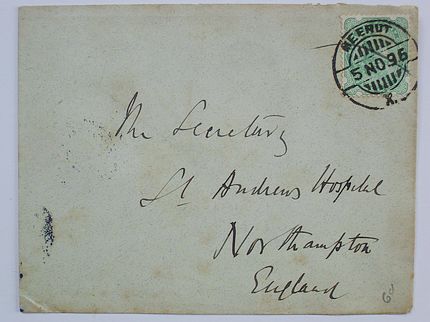 MEERUT
5 NO 96
X.
The Secretary
St Andrews Hospital
Northampton
England
6d